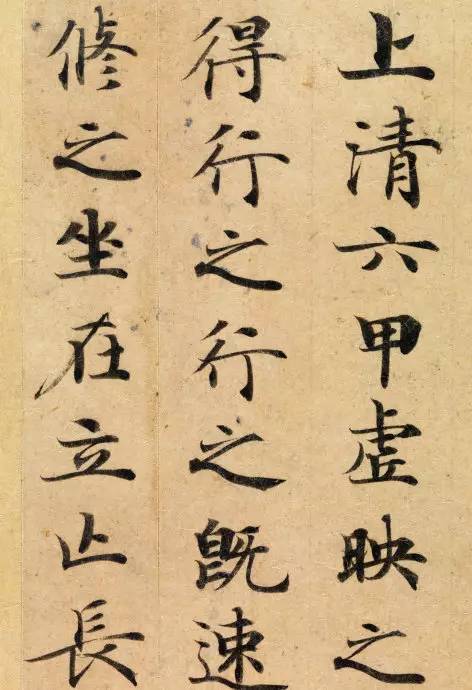 上清六甲虚映之
得行之行之既速
脩之坐在立亾長